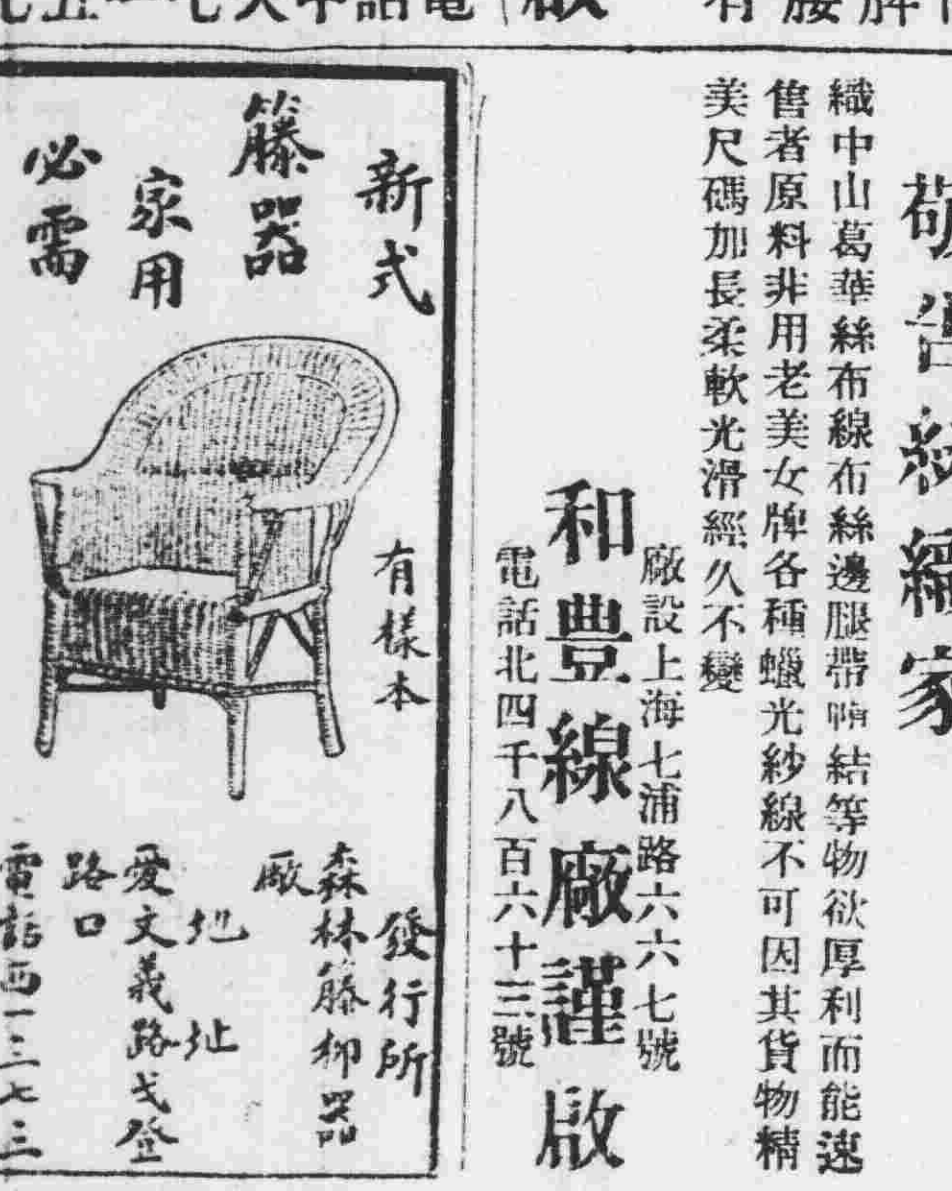 敬告紡織家
織中山葛華絲布線布絲邊腿帶 結等物欲厚利而能速
售者原料非用老美女牌各種蠟光紗線不可因其貨物精
美尺碼加長柔軟光滑經久不變
廠設上海七浦路六六七號
和豊線廠謹啟
電話北四千八百六十三號
新式
籐器
家用
必需
有樣本
發行所
森林籐柳器
廠
地址
愛文義路戈登
路口
電話西一三七三